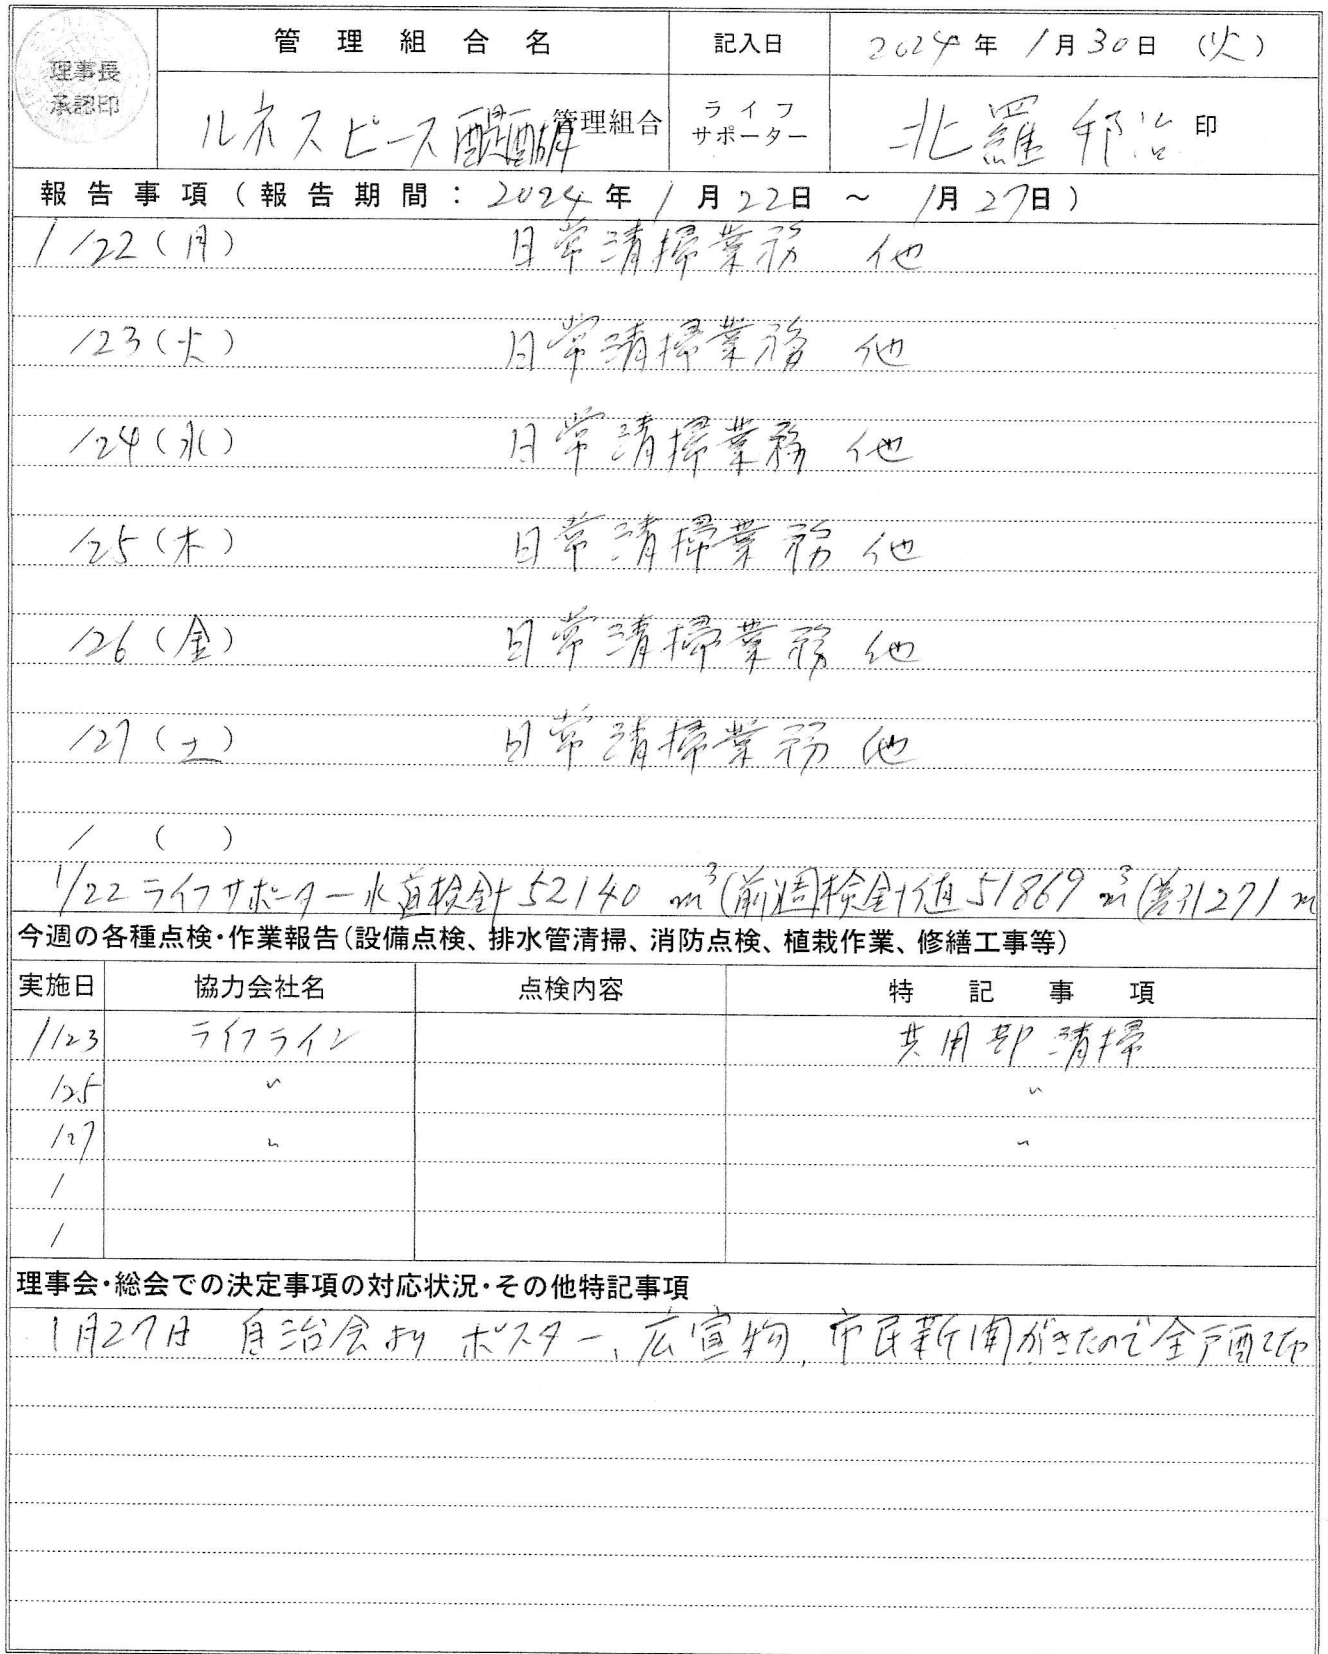 理事長
承認印
管理組合名
記入日
2024年 1月30日 (火)
ルネスピース醍醐管理組合
ライフ
サポーター
北羅 邦治 印
報告事項(報告期間:2024年1月22日 ~ 1月27日)
1/22(月) 日常清掃業務 他
/23(火) 日常清掃業務 他
/24(水) 日常清掃業務 他
/25(木) 日常清掃業務 他
/26(金) 日常清掃業務 他
/27(土) 日常清掃業務 他
/ ( )
1/22 ライフサポーター水道検針 52140 m³(前週検針値51869m³(差引271m
今週の各種点検・作業報告(設備点検、排水管清掃、消防点検、植栽作業、修繕工事等)
実施日 協力会社名 点検内容 特記事項
1/23 ライフライン 共用部清掃
/25 〃 〃
/27 〃 〃
/
/
理事会・総会での決定事項の対応状況・その他特記事項
1月27日 自治会より ポスター、広宣物、市民新聞がきたので全戸配布